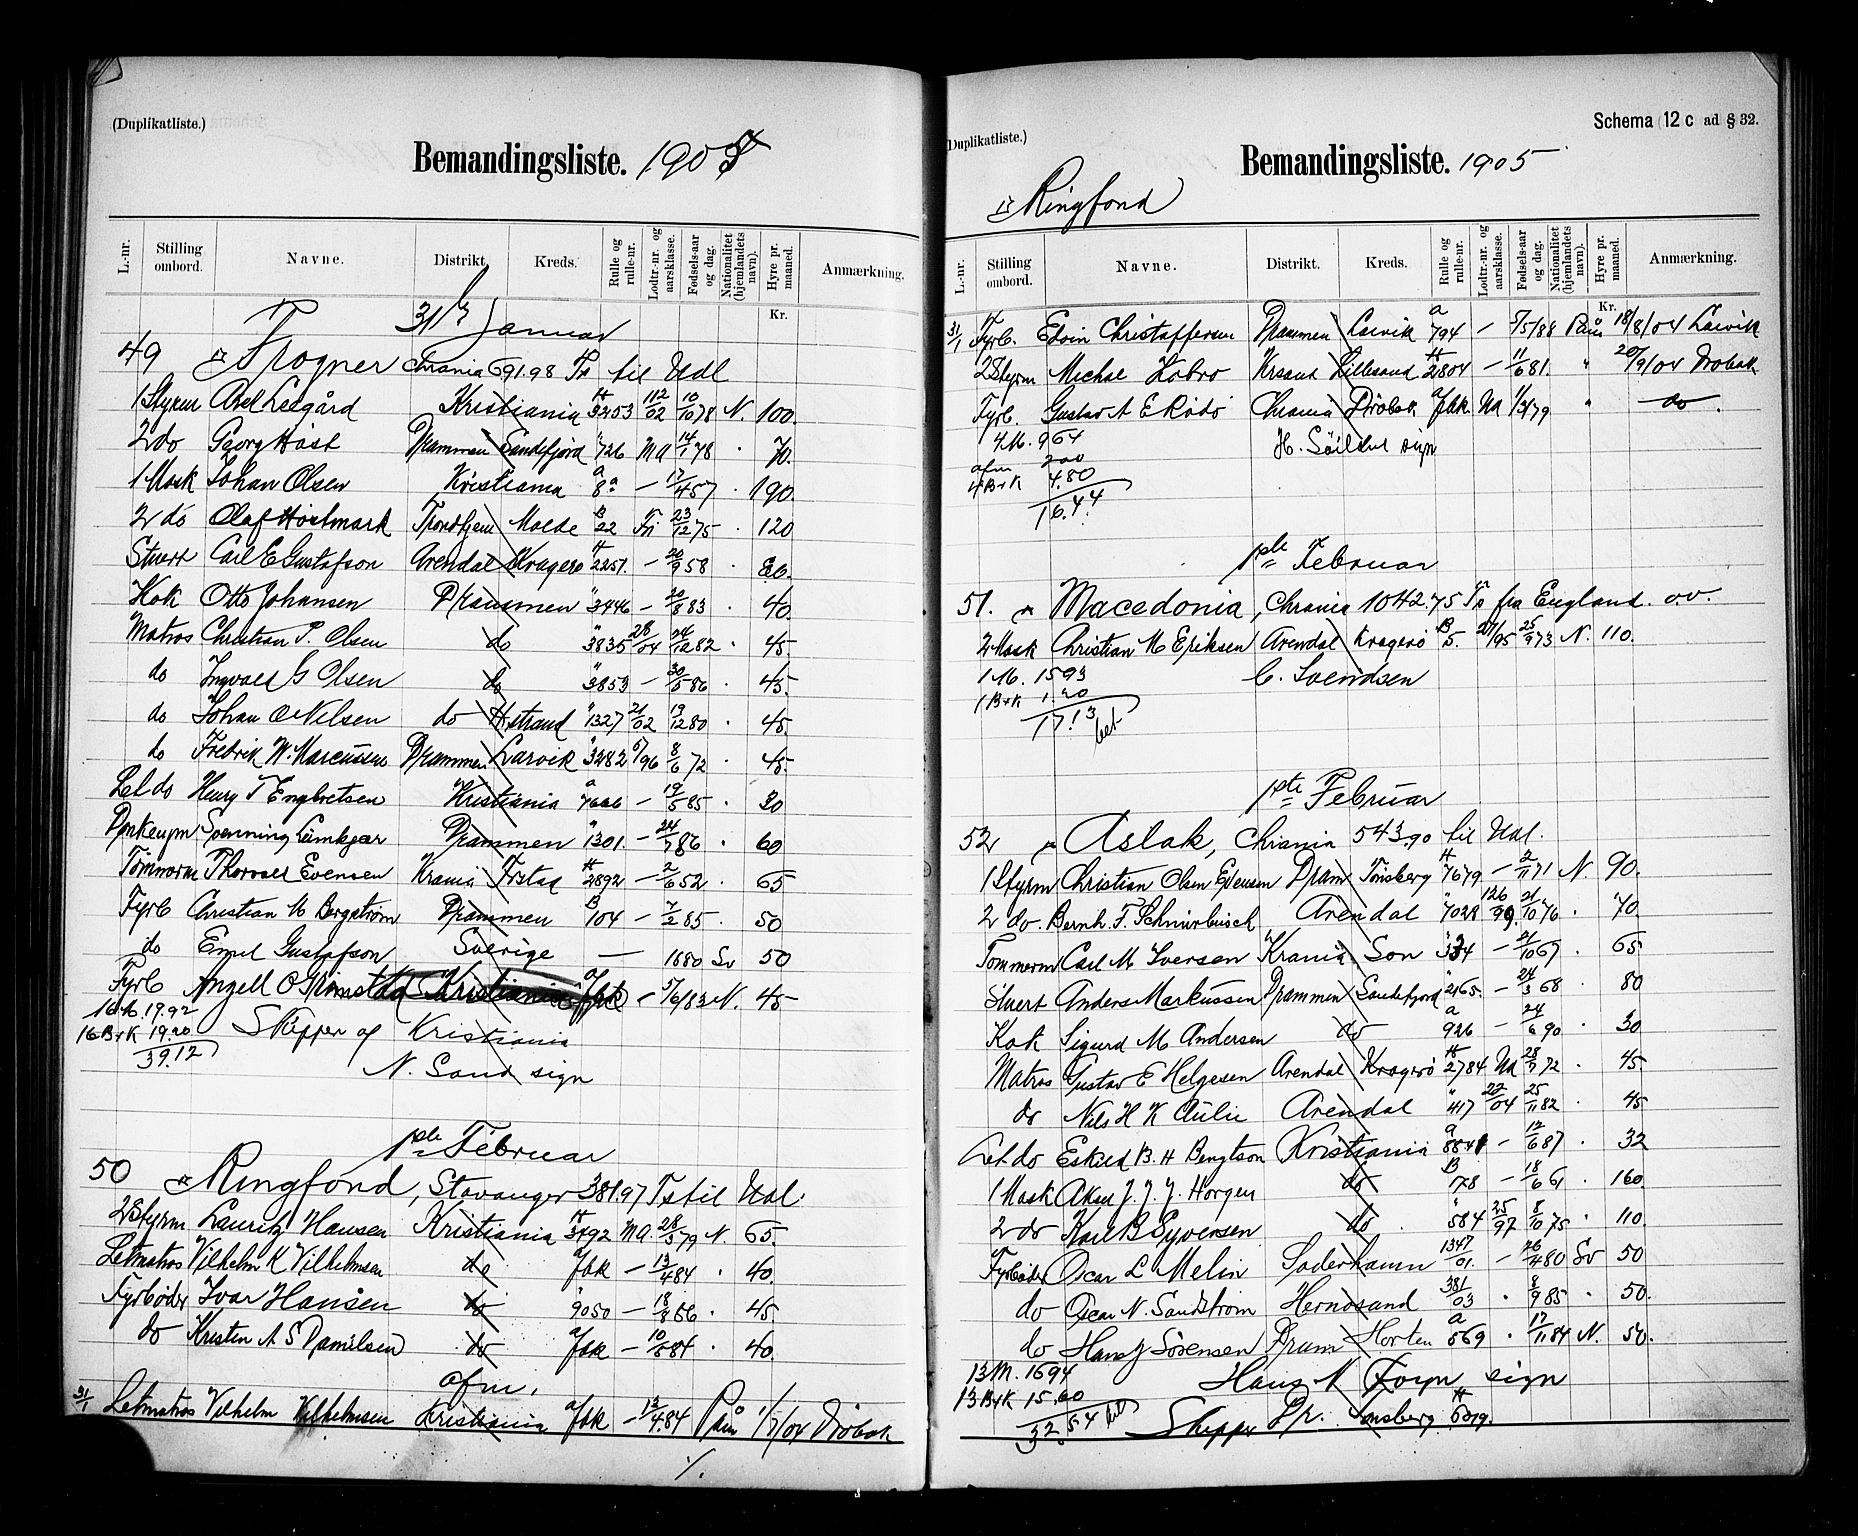 (Duplikatliste.)
Bemandingsliste. 1905
L.-nr. Stilling ombord. Navne. Distrikt. Kreds. Rulle og rulle-nr. Lodtr.-nr. og aarsklasse. Fødsels-aar og dag. Nationalitet (hjemlandets navn). Hyre pr. maaned. Anmærkning.
Kr.
31 Januar
49 Frogner Chrania 691.98 Ts til Udl
1 Styrm Axel Leegård Kristiania H 3253 112/02 10/10 78 N. 100.
2 do Georg Høst Drammen Sandefjord " 726 Ma 14/1 78 . 70.
1 Mask Johan Olsen Kristiania a 8 — 17/4 57 . 190.
2 do Olaf Høstmark Trondhjem Molde B 22 Fri 23/12 75 . 120
Stuert Carl E Gustafson Arendal Kragerø H 2251. — 20/9 58 .
Kok Otto Johansen Drammen " 3446 — 20/8 83 . 40.
Matros Christian P. Olsen do " 3835 28/04 24/12 82 . 45.
do Ingvald G Olsen do " 3853 — 30/5 86 . 45.
do Johan O Nilsen do Hstrand " 1327 21/02 19/12 80 . 45.
do Fredrik W. Marcussen Drammen Larvik " 3282 5/96 8/6 72 . 45.
Let do Henry T Engbretsen Kristiania a — 19/5 85 . 30
Donkeym Svenning Drammen " 1301. — 24/7 86 . 60
Tømmerm Thorvald Evensen Krania Frstad H 2892 — 2/6 52 . 65
Fyrb Christian M Bergstrøm Drammen B 104 — 7/2 85 . 50
do Emil Gustafson Sverige — 1880 Sv 50
Fyrb Angell O Grimstad Kristiania afbk — 5/6/83 N. 45
16 M. 19.92
16 B+K 19.20 Skipper og Kristiania
39.12 N. Sand sign
1ste Februar
50 Ringfond, Stavanger 381.97 Ts til Udl.
2 Styrm Lauritz Hansen Kristiania H 3492 Ma. 28/5 79 N. 65.
Letmatros Vilhelm K Vilhelmsen do afbk — 13/4 84 . 40.
Fyrbøder Ivar Hansen do " 9050 — 18/8 66 . 45.
do Kristen A S Danielsen do afbk — 10/8 84 . 40.
afm.
31/1 Letmatros Vilhelm Vilhelmsen Kristiania afbk — 13/4 84 Påm 1/7/04 Drøbak
·/.
Schema 12 c ad § 32.
Duplikatliste.)
Bemandingsliste. 1905
Ringfond
L.-nr. Stilling ombord. Navne. Distrikt. Kreds. Rulle og rulle-nr. Lodtr.-nr. og aarsklasse. Fødsels-aar og dag. Nationalitet (hjemlandets navn). Hyre pr. maaned. Anmærkning.
Kr.
31/1 Fyrb. Edvin Christoffersen Drammen Larvik a 794 — 5/5/88 Påm 18/8/04 Larvik
2 Styrm Michal Krsand Lillesand H 2804 — 11/6 81. " 20/9/04 Drøbak
Fyrb. Gustav A E Rødø Chrania Drøbak afbk Ma " do.
4 M. 964 H. sign
afm 200
4 B+K 4.80
16.44
1ste Februar
51. Macedonia, Chrania 1042.75 Ts fra England. o.v.
2 Mask Christian M Eriksen Arendal Kragerø B 5. 27/95 25/9 73 N. 110.
1 M. 1593 C. Svendsen
1 B+K 1.20
17.13 bet
1ste Februar
52 Aslak, Chrania 543.90 til Udl.
1 Styrm Christian Olsen Evensen Dram Tønsberg H 7679 — 2/11 71 N. 90.
2 do. Bernh. F. Schnurbusch Arendal " 7028 126/99 21/10 76 . 70.
Tømmerm Carl M Iversen Krania Son " 334 — 21/10 67 . 65
Stuert Anders Markussen Drammen Sandefjord " 2165. — 24/3 68 . 80
Kok Sigurd M Andersen do a 926 — 24/6 90 . 30
Matros Gustav E Helgesen Arendal Kragerø H 2784 Ma 28/7 72 . 45.
do Nils H K Aulie Arendal " 417 22/04 25/11 82 . 45
Let do Eskild B. H Bengtson Kristiania a 8841 — 12/6 87 . 32
1 Mask Aksel J. J. J. Horgen do B 178 — 18/6 61 . 160.
2 do Karl B Syversen do . " 584 25/97 8/10 75 . 110
Fyrbøder Oscar L Melin Søderhamn 1347/01. — 26/4 80 Sv 50
do Oscar N. Sandstrøm Hernøsand 381/03 . 8/9 85 . 50.
do Hans J Sørensen Dram Horten a 569 . 17/11 84 N. 50.
13 M. 1694 Hans N Foyn sign
13 B+K 15.60
32.54 bet Skipper Dr. Tønsberg H